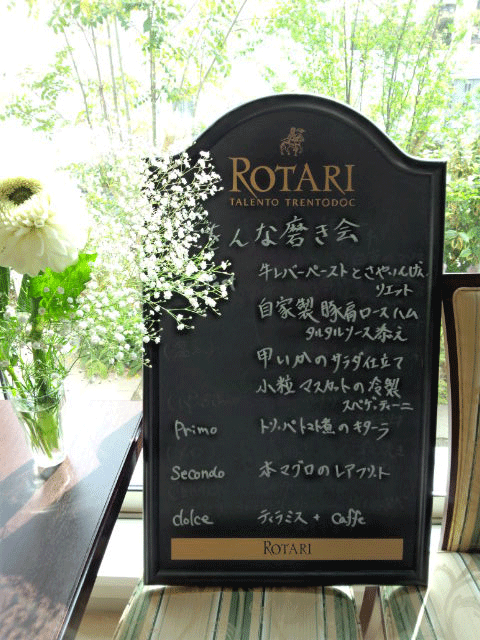 ROTARI
TALENTO TRENTODOC
をんな磨き会
牛レバーペーストとさやいんげん
リエット
自家製豚肩ロースハム
タルタルソース添え
甲いかのサラダ仕立て
小粒マスカットの冷製
スペゲッティーニ
Primo トリッパトマト煮のキターラ
Secondo 本マグロのレアフリット
dolce ティラミス + caffe
ROTARI